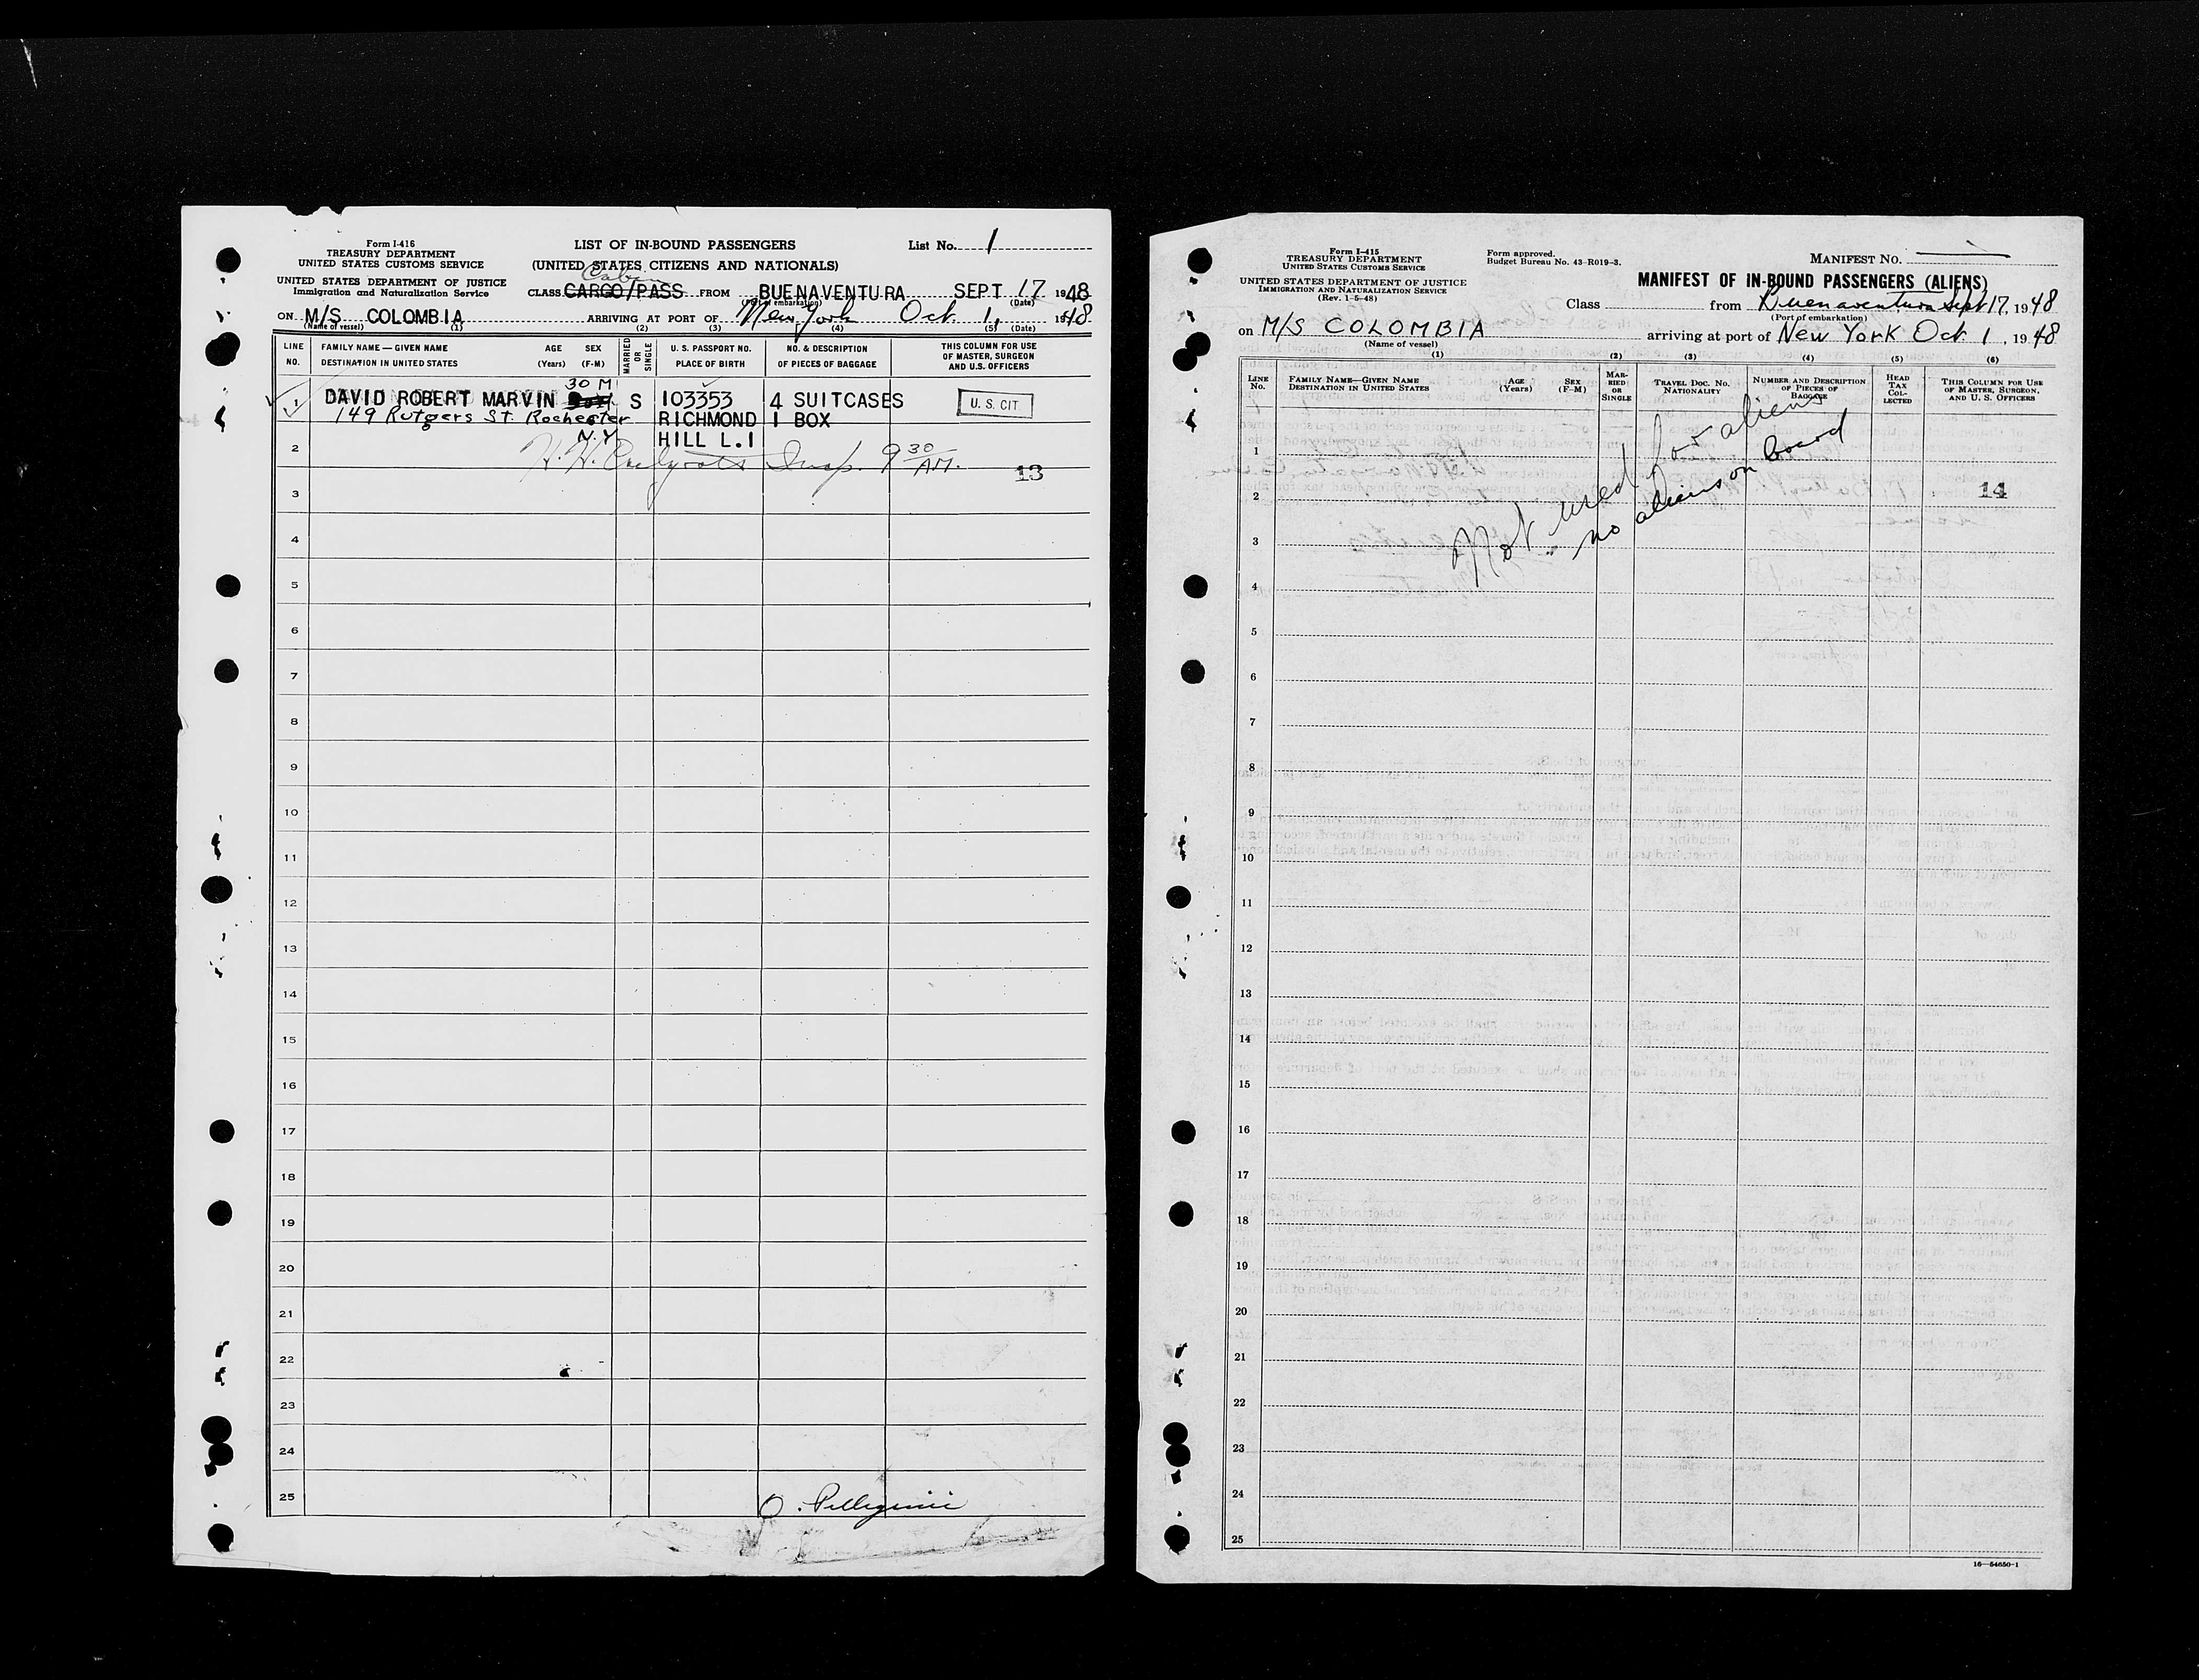 Form I-416
TREASURY DEPARTMENT
UNITED STATES CUSTOMS SERVICE
UNITED STATES DEPARTMENT OF JUSTICE
Immigration and Naturalization Service
LIST OF IN-BOUND PASSENGERS
(UNITED STATES CITIZENS AND NATIONALS)
List No. 1
CLASS CARGO/PASS FROM BUENAVENTURA SEPT 17 1948
(Port of embarkation) (Date)
ON M/S COLOMBIA ARRIVING AT PORT OF New York Oct. 1, 1948
(Name of vessel) (1) (2) (3) (4) (5) (Date)
LINE NO.
FAMILY NAME — GIVEN NAME
DESTINATION IN UNITED STATES
AGE (Years)
SEX (F-M)
MARRIED OR SINGLE
U. S. PASSPORT NO.
PLACE OF BIRTH
NO. & DESCRIPTION
OF PIECES OF BAGGAGE
THIS COLUMN FOR USE
OF MASTER, SURGEON
AND U.S. OFFICERS
30 M
1 DAVID ROBERT MARVIN S 103353 4 SUITCASES U. S. CIT
149 Rutgers St. Rochester RICHMOND 1 BOX
N.Y HILL L.I
2 H. H. Insp. 9 30 AM.
13
3
4
5
6
7
8
9
10
11
12
13
14
15
16
17
18
19
20
21
22
23
24
25
O. Pellegrini
Form I-415
TREASURY DEPARTMENT
UNITED STATES CUSTOMS SERVICE
UNITED STATES DEPARTMENT OF JUSTICE
IMMIGRATION AND NATURALIZATION SERVICE
(Rev. 1-5-48)
Form approved.
Budget Bureau No. 43-R019-3.
MANIFEST NO.
MANIFEST OF IN-BOUND PASSENGERS (ALIENS)
Class from Buenaventura Sept 17, 1948
(Port of embarkation)
on M/S COLOMBIA arriving at port of New York Oct. 1, 1948
(Name of vessel)
(1) (2) (3) (4) (5) (6)
LINE No.
FAMILY NAME—GIVEN NAME
DESTINATION IN UNITED STATES
AGE (Years)
SEX (F-M)
MARRIED OR SINGLE
TRAVEL DOC. NO.
NATIONALITY
NUMBER AND DESCRIPTION
OF PIECES OF
BAGGAGE
HEAD TAX COLLECTED
THIS COLUMN FOR USE
OF MASTER, SURGEON,
AND U. S. OFFICERS
Not used for aliens
no aliens on board
14
1
2
3
4
5
6
7
8
9
10
11
12
13
14
15
16
17
18
19
20
21
22
23
24
25
16—54650-1